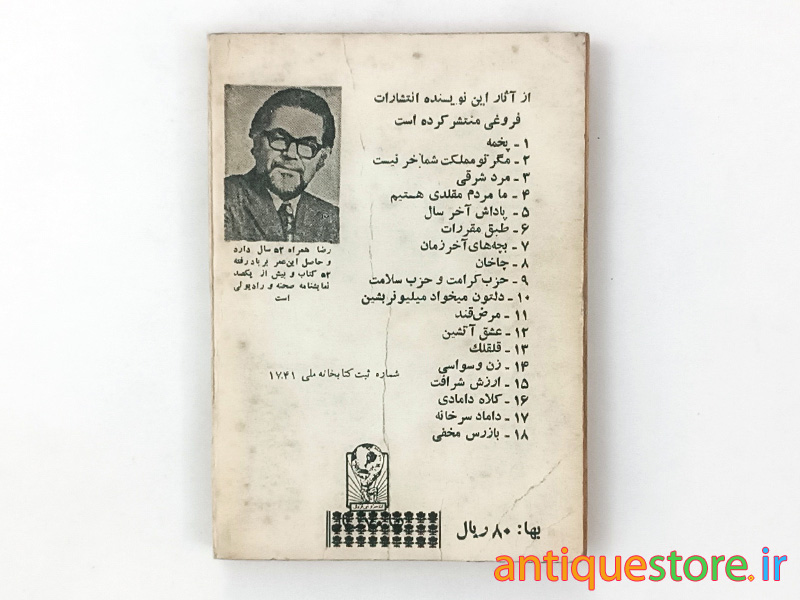 از آثار این نویسنده انتشارات
فروغی منتشر کرده است
۱ - پخمه
۲ - مگر تو مملکت شما خر نیست
۳ - مرد شرقی
۴ - ما مردم مقلدی هستیم
۵ - پاداش آخر سال
۶ - طبق مقررات
۷ - بچه‌های آخر زمان
۸ - چاخان
۹ - حزب کرامت و حزب سلامت
۱۰ - دلتون میخواد میلیونر بشین
۱۱ - مرض قند
۱۲ - عشق آتشین
۱۳ - قلقلک
۱۴ - زن وسواسی
۱۵ - ارزش شرافت
۱۶ - کلاه دامادی
۱۷ - داماد سرخانه
۱۸ - بازرس مخفی
رضا همراه ۵۳ سال دارد
و حاصل این عمر بر باد رفته
۵۲ کتاب و بیش از یکصد
نمایشنامه صحنه و رادیوئی
است
شماره ثبت کتابخانه ملی ۱۷۴۱
بها: ۸۰ ریال
antiquestore.ir